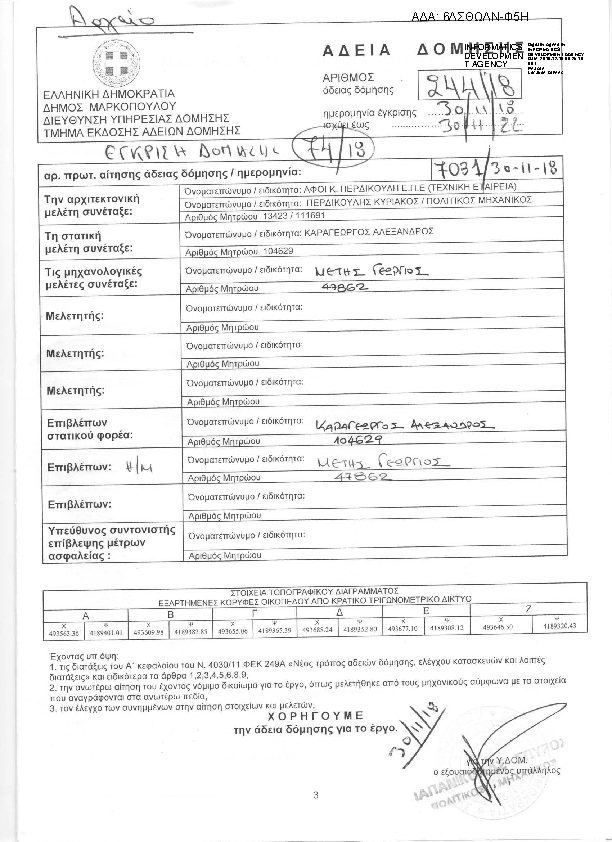 Αρχείο
ΑΔΑ: 6ΛΣΘΩΛΝ-Φ5Η
ΑΔΕΙΑ ΔΟΜΗΣΗΣ
INFORMATICS
DEVELOPMEN
T AGENCY
ΑΡΙΘΜΟΣ
άδειας δόμησης
244/18
ημερομηνία έγκρισης 30/11/18
ισχύει έως 30/11/22
ΕΛΛΗΝΙΚΗ ΔΗΜΟΚΡΑΤΙΑ
ΔΗΜΟΣ ΜΑΡΚΟΠΟΥΛΟΥ
ΔΙΕΥΘΥΝΣΗ ΥΠΗΡΕΣΙΑΣ ΔΟΜΗΣΗΣ
ΤΜΗΜΑ ΕΚΔΟΣΗΣ ΑΔΕΙΩΝ ΔΟΜΗΣΗΣ
ΕΓΚΡΙΣΗ ΔΟΜΗΣΗΣ 74/18
αρ. πρωτ. αίτησης άδειας δόμησης / ημερομηνία: 7031/30-11-18
Την αρχιτεκτονική
μελέτη συνέταξε:
Όνοματεπώνυμο / ειδικότητα: ΑΦΟΙ Κ. ΠΕΡΔΙΚΟΥΛΗ Ε.Π.Ε (ΤΕΧΝΙΚΗ ΕΤΑΙΡΕΙΑ)
Όνοματεπώνυμο / ειδικότητα: ΠΕΡΔΙΚΟΥΛΗΣ ΚΥΡΙΑΚΟΣ / ΠΟΛΙΤΙΚΟΣ ΜΗΧΑΝΙΚΟΣ
Αριθμός Μητρώου 13423 / 111691
Τη στατική
μελέτη συνέταξε:
Όνοματεπώνυμο / ειδικότητα: ΚΑΡΑΓΕΩΡΓΟΣ ΑΛΕΞΑΝΔΡΟΣ
Αριθμός Μητρώου 104629
Τις μηχανολογικές
μελέτες συνέταξε:
Όνοματεπώνυμο / ειδικότητα: ΜΕΤΗΣ ΓΕΩΡΓΙΟΣ
Αριθμός Μητρώου 47862
Μελετητής:
Όνοματεπώνυμο / ειδικότητα:
Αριθμός Μητρώου
Μελετητής:
Όνοματεπώνυμο / ειδικότητα:
Αριθμός Μητρώου
Μελετητής:
Όνοματεπώνυμο / ειδικότητα:
Αριθμός Μητρώου
Επιβλέπων
στατικού φορέα:
Όνοματεπώνυμο / ειδικότητα: ΚΑΡΑΓΕΩΡΓΟΣ ΑΛΕΞΑΝΔΡΟΣ
Αριθμός Μητρώου 104629
Επιβλέπων: Η/Μ
Όνοματεπώνυμο / ειδικότητα: ΜΕΤΗΣ ΓΕΩΡΓΙΟΣ
Αριθμός Μητρώου 47862
Επιβλέπων:
Όνοματεπώνυμο / ειδικότητα:
Αριθμός Μητρώου
Υπεύθυνος συντονιστής
επίβλεψης μέτρων
ασφαλείας :
Όνοματεπώνυμο / ειδικότητα:
Αριθμός Μητρώου
ΣΤΟΙΧΕΙΑ ΤΟΠΟΓΡΑΦΙΚΟΥ ΔΙΑΓΡΑΜΜΑΤΟΣ
ΕΞΑΡΤΗΜΕΝΕΣ ΚΟΡΥΦΕΣ ΟΙΚΟΠΕΔΟΥ ΑΠΟ ΚΡΑΤΙΚΟ ΤΡΙΓΩΝΟΜΕΤΡΙΚΟ ΔΙΚΤΥΟ
Α Β Γ Δ Ε Ζ
Χ Ψ Χ Ψ Χ Ψ Χ Ψ Χ Ψ Χ Ψ
493563.36 4189401.01 493609.98 4189382.85 493655.06 4189365.39 493688.24 4189352.80 493677.10 4189309.12 493646.50 4189320.43
Έχοντας υπ΄όψη:
1. τις διατάξεις του Α΄ κεφαλαίου του Ν. 4030/11 ΦΕΚ 249Α «Νέος τρόπος αδειών δόμησης, ελέγχου κατασκευών και λοιπές
διατάξεις» και ειδικότερα τα άρθρα 1,2,3,4,5,6,8,9,
2. την ανωτέρω αίτηση του έχοντος νόμιμο δικαίωμα για το έργο, όπως μελετήθηκε από τους μηχανικούς σύμφωνα με τα στοιχεία
που αναγράφονται στα ανωτέρω πεδία,
3. τον έλεγχο των συνημμένων στην αίτηση στοιχείων και μελετών,
ΧΟΡΗΓΟΥΜΕ
την άδεια δόμησης για το έργο.
30/11/18
για την Υ.ΔΟΜ.
ο εξουσιοδοτημένος υπάλληλος
ΠΟΛΙΤΙΚΟΣ ΜΗΧΑΝΙΚΟΣ
3